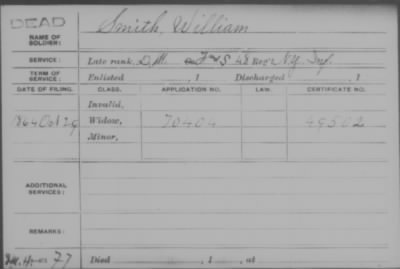 DEAD
Smith, William
NAME OF SOLDIER:
SERVICE: Late rank, D.M. F and S 48 Reg't N.Y. Inf.
TERM OF SERVICE: Enlisted , 1 Discharged , 1
DATE OF FILING. CLASS. APPLICATION NO. LAW. CERTIFICATE NO.
Invalid,
1864 Oct 29 Widow, 70404 49502
Minor,
ADDITIONAL SERVICES:
REMARKS:
77 Died , 1 , at